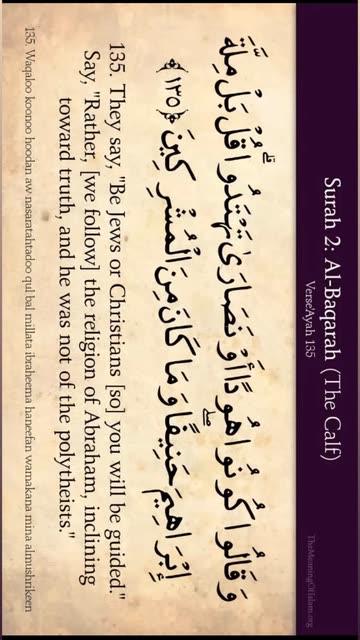 Surah 2: Al-Baqarah (The Calf)
Verse/Ayah 135
TheMeaningOfIslam.org
وَقَالُوا كُونُوا هُودًا أَوْ نَصَارَىٰ تَهْتَدُوا ۗ قُلْ بَلْ مِلَّةَ
إِبْرَاهِيمَ حَنِيفًا ۖ وَمَا كَانَ مِنَ الْمُشْرِكِينَ ﴿١٣٥﴾
135. They say, "Be Jews or Christians [so] you will be guided."
Say, "Rather, [we follow] the religion of Abraham, inclining
toward truth, and he was not of the polytheists."
135. Waqaloo koonoo hoodan aw nasaratahtadoo qul bal millata ibraheema haneefan wamakana mina almushrikeen